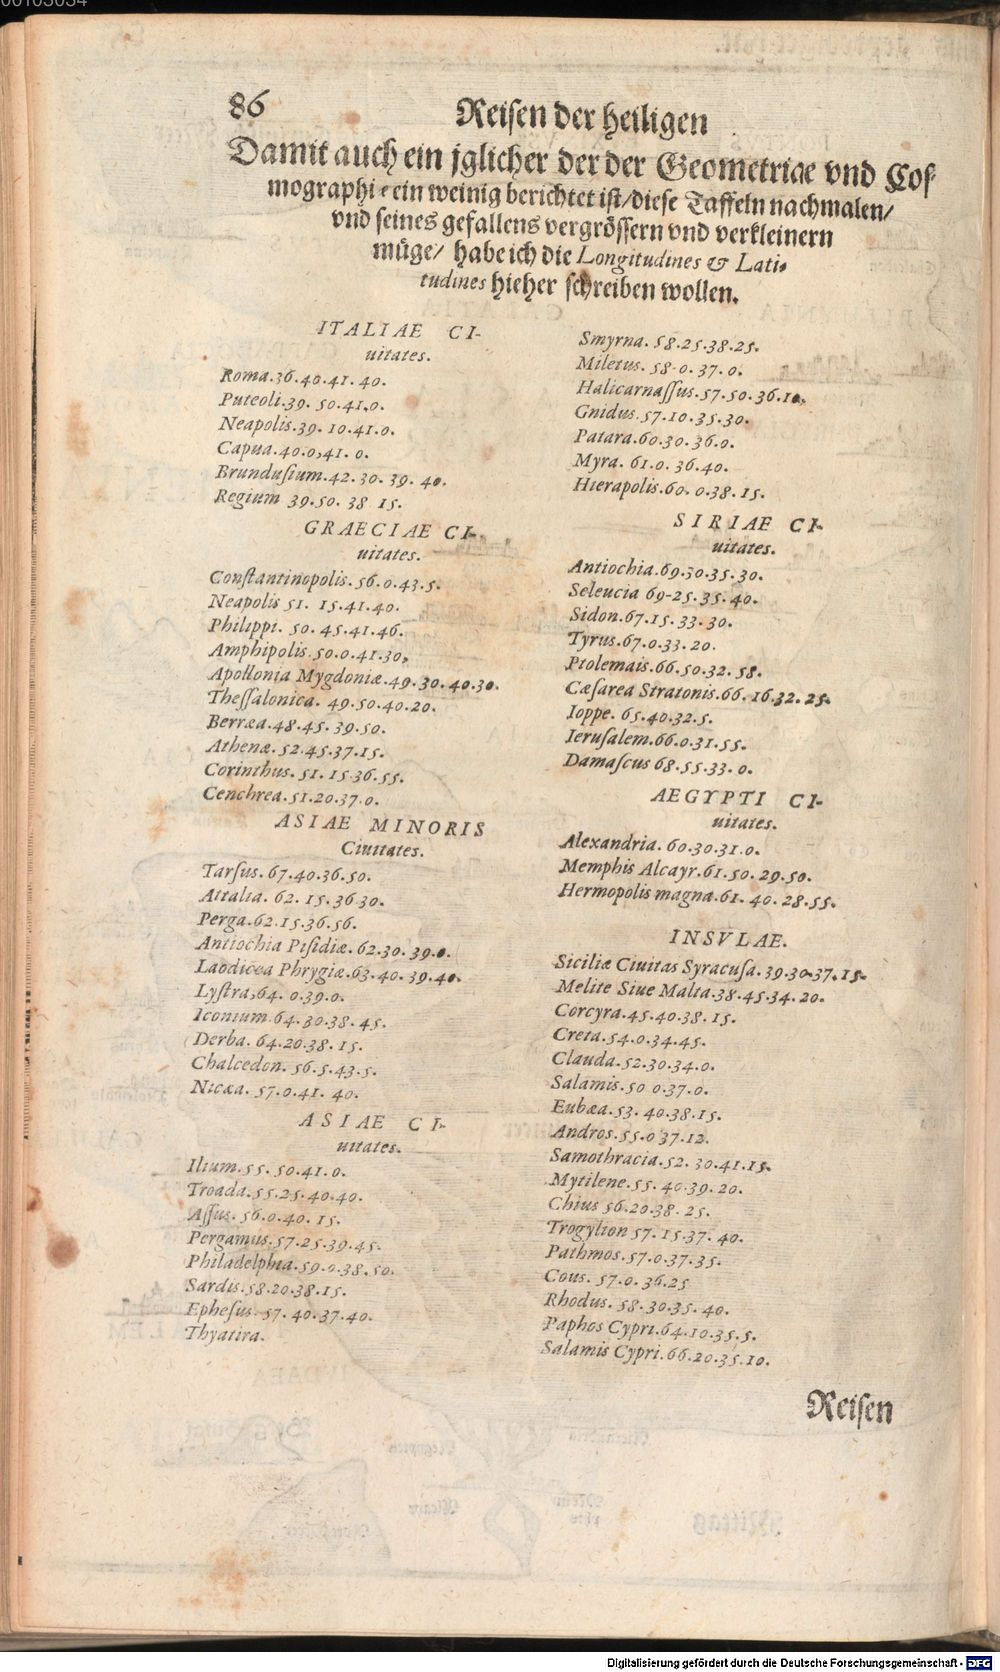 86
Reisen der heiligen
Damit auch ein jglicher der der Geometriae vnd Coſ
mographi e ein weinig berichtet iſt/dieſe Taffeln nachmalen/
vnd ſeines gefallens vergröſſern vnd verkleinern
müge/ habe ich die Longitudines & Lati-
tudines hieher ſchreiben wollen.
ITALIAE CI-
uitates.
Roma.36.40.41.40.
Puteoli.39.50.41.0.
Neapolis.39.10.41.0.
Capua.40.0,41.0.
Brunduſium.42.30.39.40.
Regium 39.50.38 15.
GRAECIAE CI-
uitates.
Conſtantinopolis.56.0.43.5.
Neapolis 51.15.41.40.
Philippi.50.45.41.46.
Amphipolis.50.0.41.30,
Apollonia Mygdoniæ.49.30.40.30.
Theſſalonica.49.50.40.20.
Berræa.48.45.39.50.
Athenæ.52.45.37.15.
Corinthus.51.15.36.55.
Cenchrea.51.20.37.0.
ASIAE MINORIS
Ciuitates.
Tarſus.67.40.36.50.
Attalia.62.15.36 30.
Perga.62.15.36.56.
Antiochia Piſidiæ.62.30.39.0.
Laodicea Phrygiæ.63.40.39.40.
Lyſtra,64.0.39.0.
Iconium.64.30.38.45.
Derba.64.20.38.15.
Chalcedon.56.5.43.5.
Nicæa.57.0.41.40.
ASIAE CI-
uitates.
Ilium.55.50.41.0.
Troada.55.25.40.40.
Aſſus.56.0.40.15.
Pergamus.57.25.39.45.
Philadelphia.59.0.38.50.
Sardis.58.20.38.15.
Epheſus.57.40.37.40.
Thyatira.
Smyrna.58.25.38.25.
Miletus.58.0.37.0.
Halicarnaſſus.57.50.36.10.
Gnidus.57.10.35.30.
Patara.60.30.36.0.
Myra.61.0.36.40.
Hierapolis.60.0.38.15.
SIRIAE CI-
uitates.
Antiochia.69.30.35.30.
Seleucia 69-25.35.40.
Sidon.67.15.33.30.
Tyrus.67.0.33.20.
Ptolemais.66.50.32.58.
Cæſarea Stratonis.66.16.32.25.
Ioppe.65.40.32.5.
Ieruſalem.66.0.31.55.
Damaſcus 68.55.33.0.
AEGYPTI CI-
uitates.
Alexandria.60.30.31.0.
Memphis Alcayr.61.50.29.50.
Hermopolis magna.61.40.28.55.
INSVLAE.
Siciliæ Ciuitas Syracuſa.39.30.37.15.
Melite Siue Malta.38.45.34.20.
Corcyra.45.40.38.15.
Creta.54.0.34.45.
Clauda.52.30.34.0.
Salamis.50 0.37.0.
Eubæa.53.40.38.15.
Andros.55.0 37.12.
Samothracia.52.30.41.15.
Mytilene.55.40.39.20.
Chius 56.20.38.25.
Trogylion 57.15.37.40.
Pathmos.57.0.37.35.
Cous.57.0.36.25
Rhodus.58.30.35.40.
Paphos Cypri.64.10.35.5.
Salamis Cypri.66.20.35.10.
Reiſen
Digitalisierung gefördert durch die Deutsche Forschungsgemeinschaft - DFG